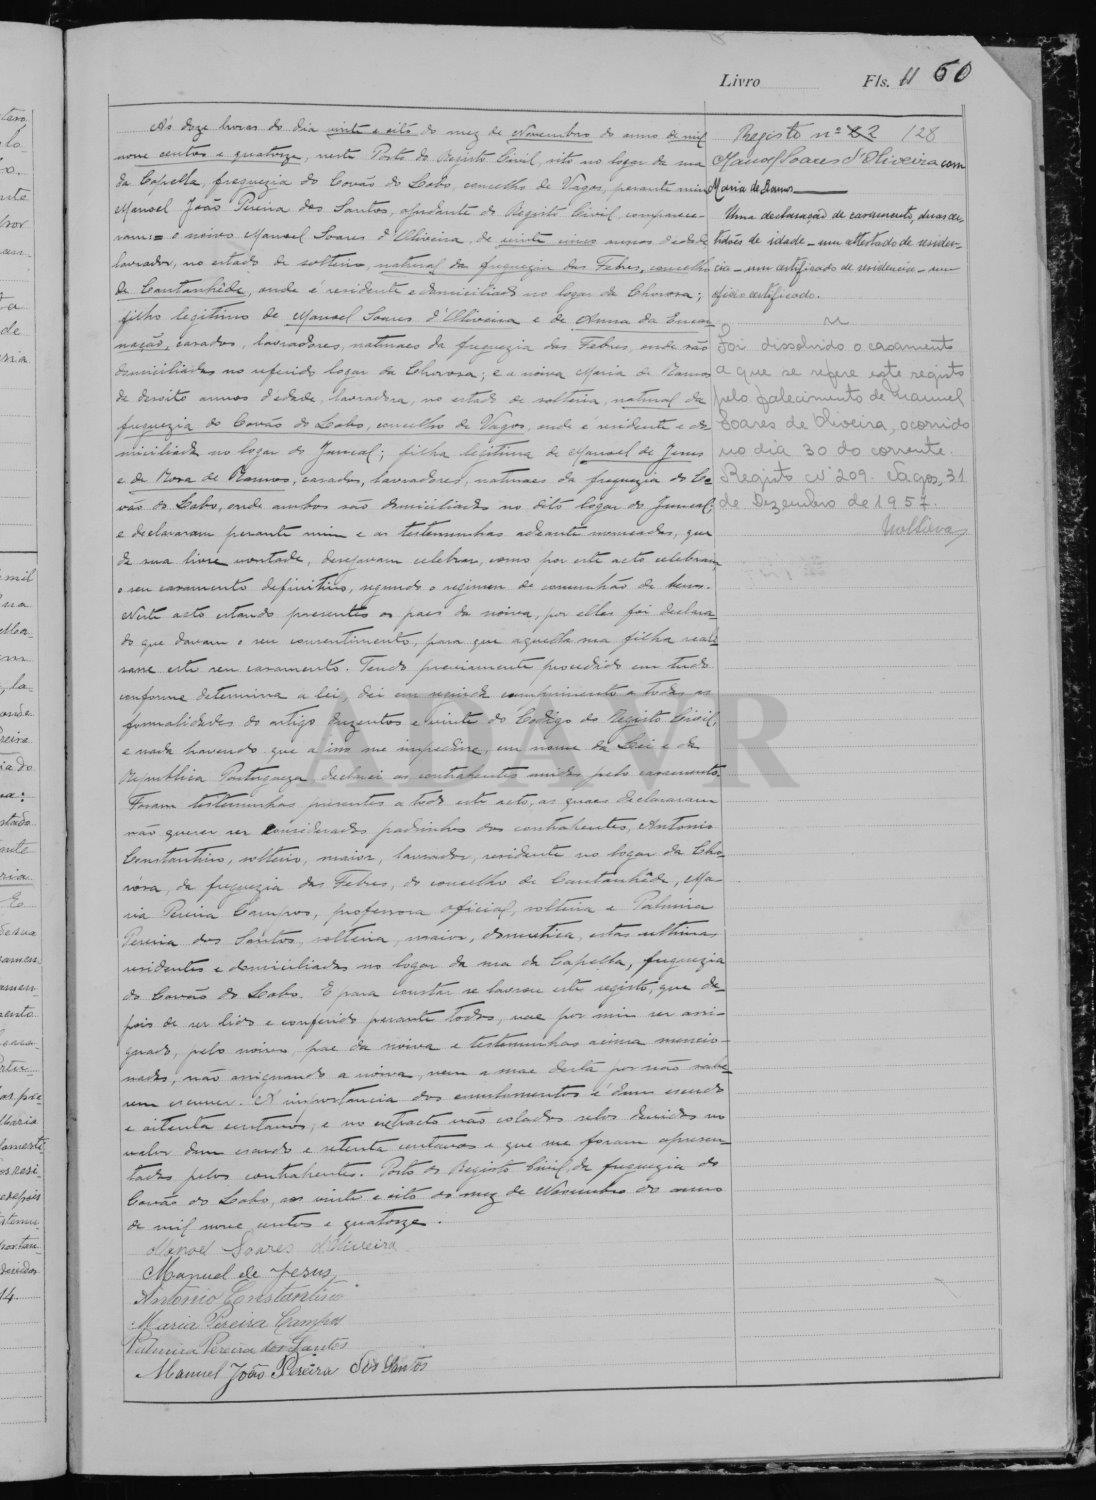 Livro Fls. 11 60
Ás doze horas do dia vinte e oito do mez de Novembro do anno de mil
nove centos e quatorze, neste Posto do Registo Civil, sito no logar da rua
da Capella, freguezia do Covão do Lobo, concelho de Vagos, perante mim
Manoel João Pereira dos Santos, ajudante do Registo Civil, comparece-
ram: o noivo Manoel Soares d'Oliveira, de vinte cinco annos d'edade
lavrador, no estado de solteiro, natural da freguezia das Febres, concelho
de Cantanhêde, onde é residente e domiciliado no logar da Chorosa;
filho legitimo de Manoel Soares d'Oliveira e de Anna da Encar-
nação, casados, lavradores, naturaes da freguezia das Febres, onde são
domiciliados no referido logar da Chorosa; e a noiva Maria de Ramos
de desoito annos d'edade, lavradora, no estado de solteira, natural da
freguezia do Covão do Lobo, concelho de Vagos, onde é residente e do-
miciliada no logar do Juncal; filha legitima de Manoel de Jesus
e de Rosa de Ramos, casados, lavradores, naturaes da freguezia do Co-
vão do Lobo, onde ambos são domiciliados no dito logar do Juncal;
e declararam perante mim e as testemunhas adeante nomeadas, que
de sua livre vontade, desejavam celebrar, como por este acto celebram,
o seu casamento definitivo, segundo o regimen de comunhão de bens.
Neste acto estando presentes os paes da noiva, por elles foi declara-
do que davam o seu consentimento, para que aquella sua filha reali-
sasse este seu casamento. Tendo previamente procedido em tudo
conforme determina a lei, dei em seguida cumprimento a todas as
formalidades do artigo duzentos e vinte do Codigo do Registo Civil,
e nada havendo que a isso me impedisse, em nome da Lei e da
Republica Portugueza declarei os contrahentes unidos pelo casamento.
Foram testemunhas presentes a todo este acto, as quaes declararam
não querer ser considerados padrinhos dos contrahentes, Antonio
Constantino, solteiro, maior, lavrador, residente no logar da Cho-
rosa, da freguezia das Febres, do concelho de Cantanhêde, Ma-
ria Pereira Campos, professora oficial, solteira e Palmira
Pereira dos Santos, solteira, maior, domestica, estas ultimas
residentes e domiciliadas no logar da rua da Capella, freguezia
do Covão do Lobo. E para constar se lavrou este registo, que de-
pois de ser lido e conferido perante todos, vae por mim ser assi-
gnado, pelo noivo, pae da noiva e testemunhas acima mencio-
nadas, não assignando a noiva, nem a mae desta por não sabe-
rem escrever. A importancia dos emolumentos é dum escudo
e oitenta centavos, e no extracto vão colados selos devidos no
valor dum escudo e setenta centavos e que me foram apresen-
tados pelos contrahentes. Posto do Registo Civil da freguezia do
Covão do Lobo, aos vinte e oito do mez de Novembro do anno
de mil nove centos e quatorze.
Manoel Soares d'Oliveira
Manuel de Jesus
Antonio Constantino
Maria Pereira Campos
Palmira Pereira dos Santos
Manuel João Pereira dos Santos
Registo nº 22 128
Manoel Soares d'Oliveira com
Maria de Ramos
Uma declaração de casamento, duas cer-
tidões de idade - um attestado de residen-
cia - um certificado de residencia - um
oficio certificado.
Foi dissolvido o casamento
a que se refere este registo
pelo falecimento de Manuel
Soares de Oliveira, ocorrido
no dia 30 do corrente.
Registo Nº 209. Vagos, 31
de Dezembro de 1957.
ADAVR